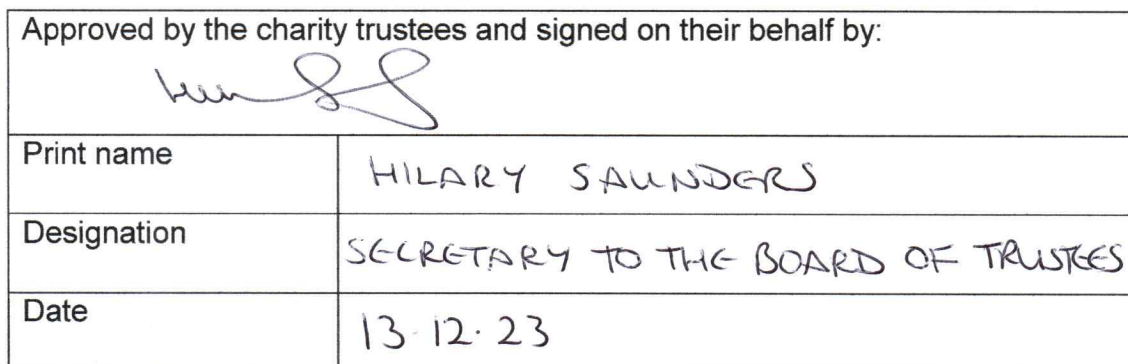 Approved by the charity trustees and signed on their behalf by:
Print name HILARY SAUNDERS
Designation SECRETARY TO THE BOARD OF TRUSTEES
Date 13.12.23